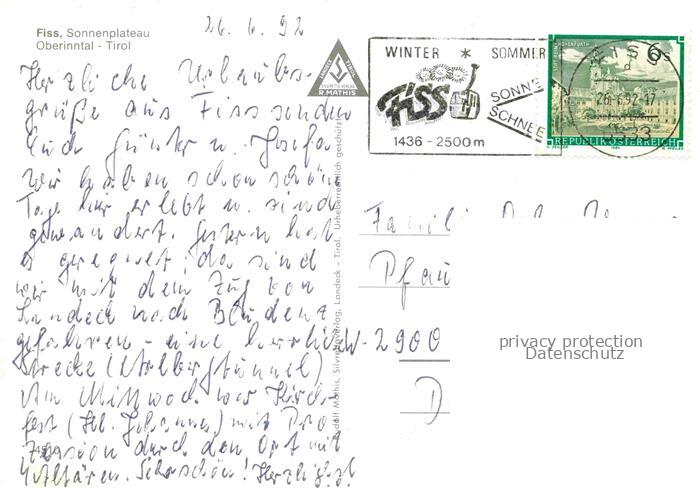 Fiss, Sonnenplateau
Oberinntal - Tirol
26. 6. 92
Herzliche Urlaubs-
grüße aus Fiss senden
Euch Günter u. Josefa
Wir haben schon schöne
Tage hier erlebt u. sind
gewandert. Gestern hat
es geregnet, da sind
wir mit dem Zug von
Landeck nach Bludenz
gefahren - eine herrliche
Strecke (Arlbergtunnel)
Am Mittwoch war Kirch-
fest (Hl. Johannes) mit Pro-
zession durch den Ort mit
4 Altären. Sehr schön! Herzlichst
R. MATHIS
Rudolf Mathis, Silvrettaverlag, Landeck - Tirol. Urheberrechtlich geschützt
WINTER * SOMMER
Fiss
SONNE
SCHNEE
1436 - 2500 m
FISS
26.6.92-17
6533
6 S
REPUBLIK ÖSTERREICH
Famili
Pfau
W-2900
D
privacy protection
Datenschutz